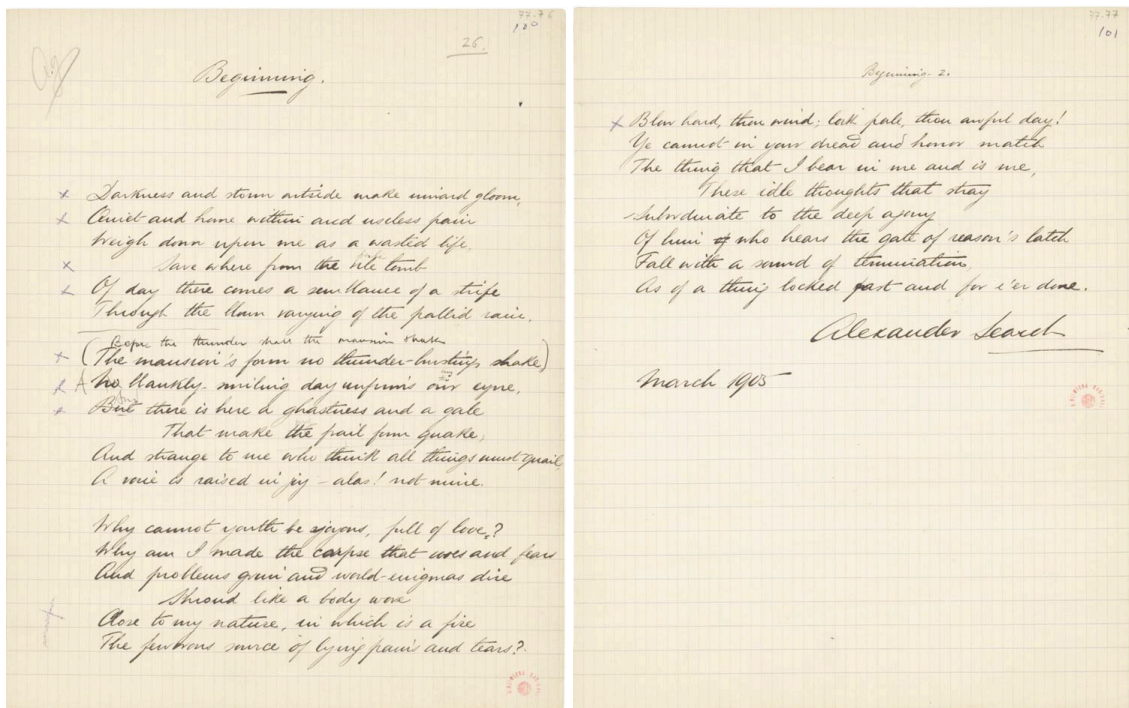 77-76
100
26.
Beginning.
Darkness and storm outside make inward gloom,
Quiet and home within and useless pain
Weigh down upon me as a wasted life,
Save where from the vile tomb
Of day there comes a semblance of a strife
Through the blam varying of the pallid rain.
Before the thunder shall the mansion shake
(The mansion's form no thunder-bursting shake)
No blankly-smiling day unfirms our eyne,
But there is here a ghastness and a gale
That make the frail form quake,
And strange to me who think all things must quail,
A voice is raised in joy – alas! not mine.
Why cannot youth be joyous, full of love?
Why am I made the corpse that woes and fears
And problems grim and world-enigmas dire
Shroud like a body wove
Close to my nature, in which is a fire
The source of lying pains and tears?
77-77
101
Beginning. 2.
Blow hard, thou wind; look pale, thou awful day!
Ye cannot in your dread and horror match
The thing that I bear in me and is me,
These idle thoughts that stray
Subordinate to the deep agony
Of him who hears the gate of reason's latch
Fall with a sound of termination
As of a thing locked fast and for e'er done.
Alexander Search
March 1905